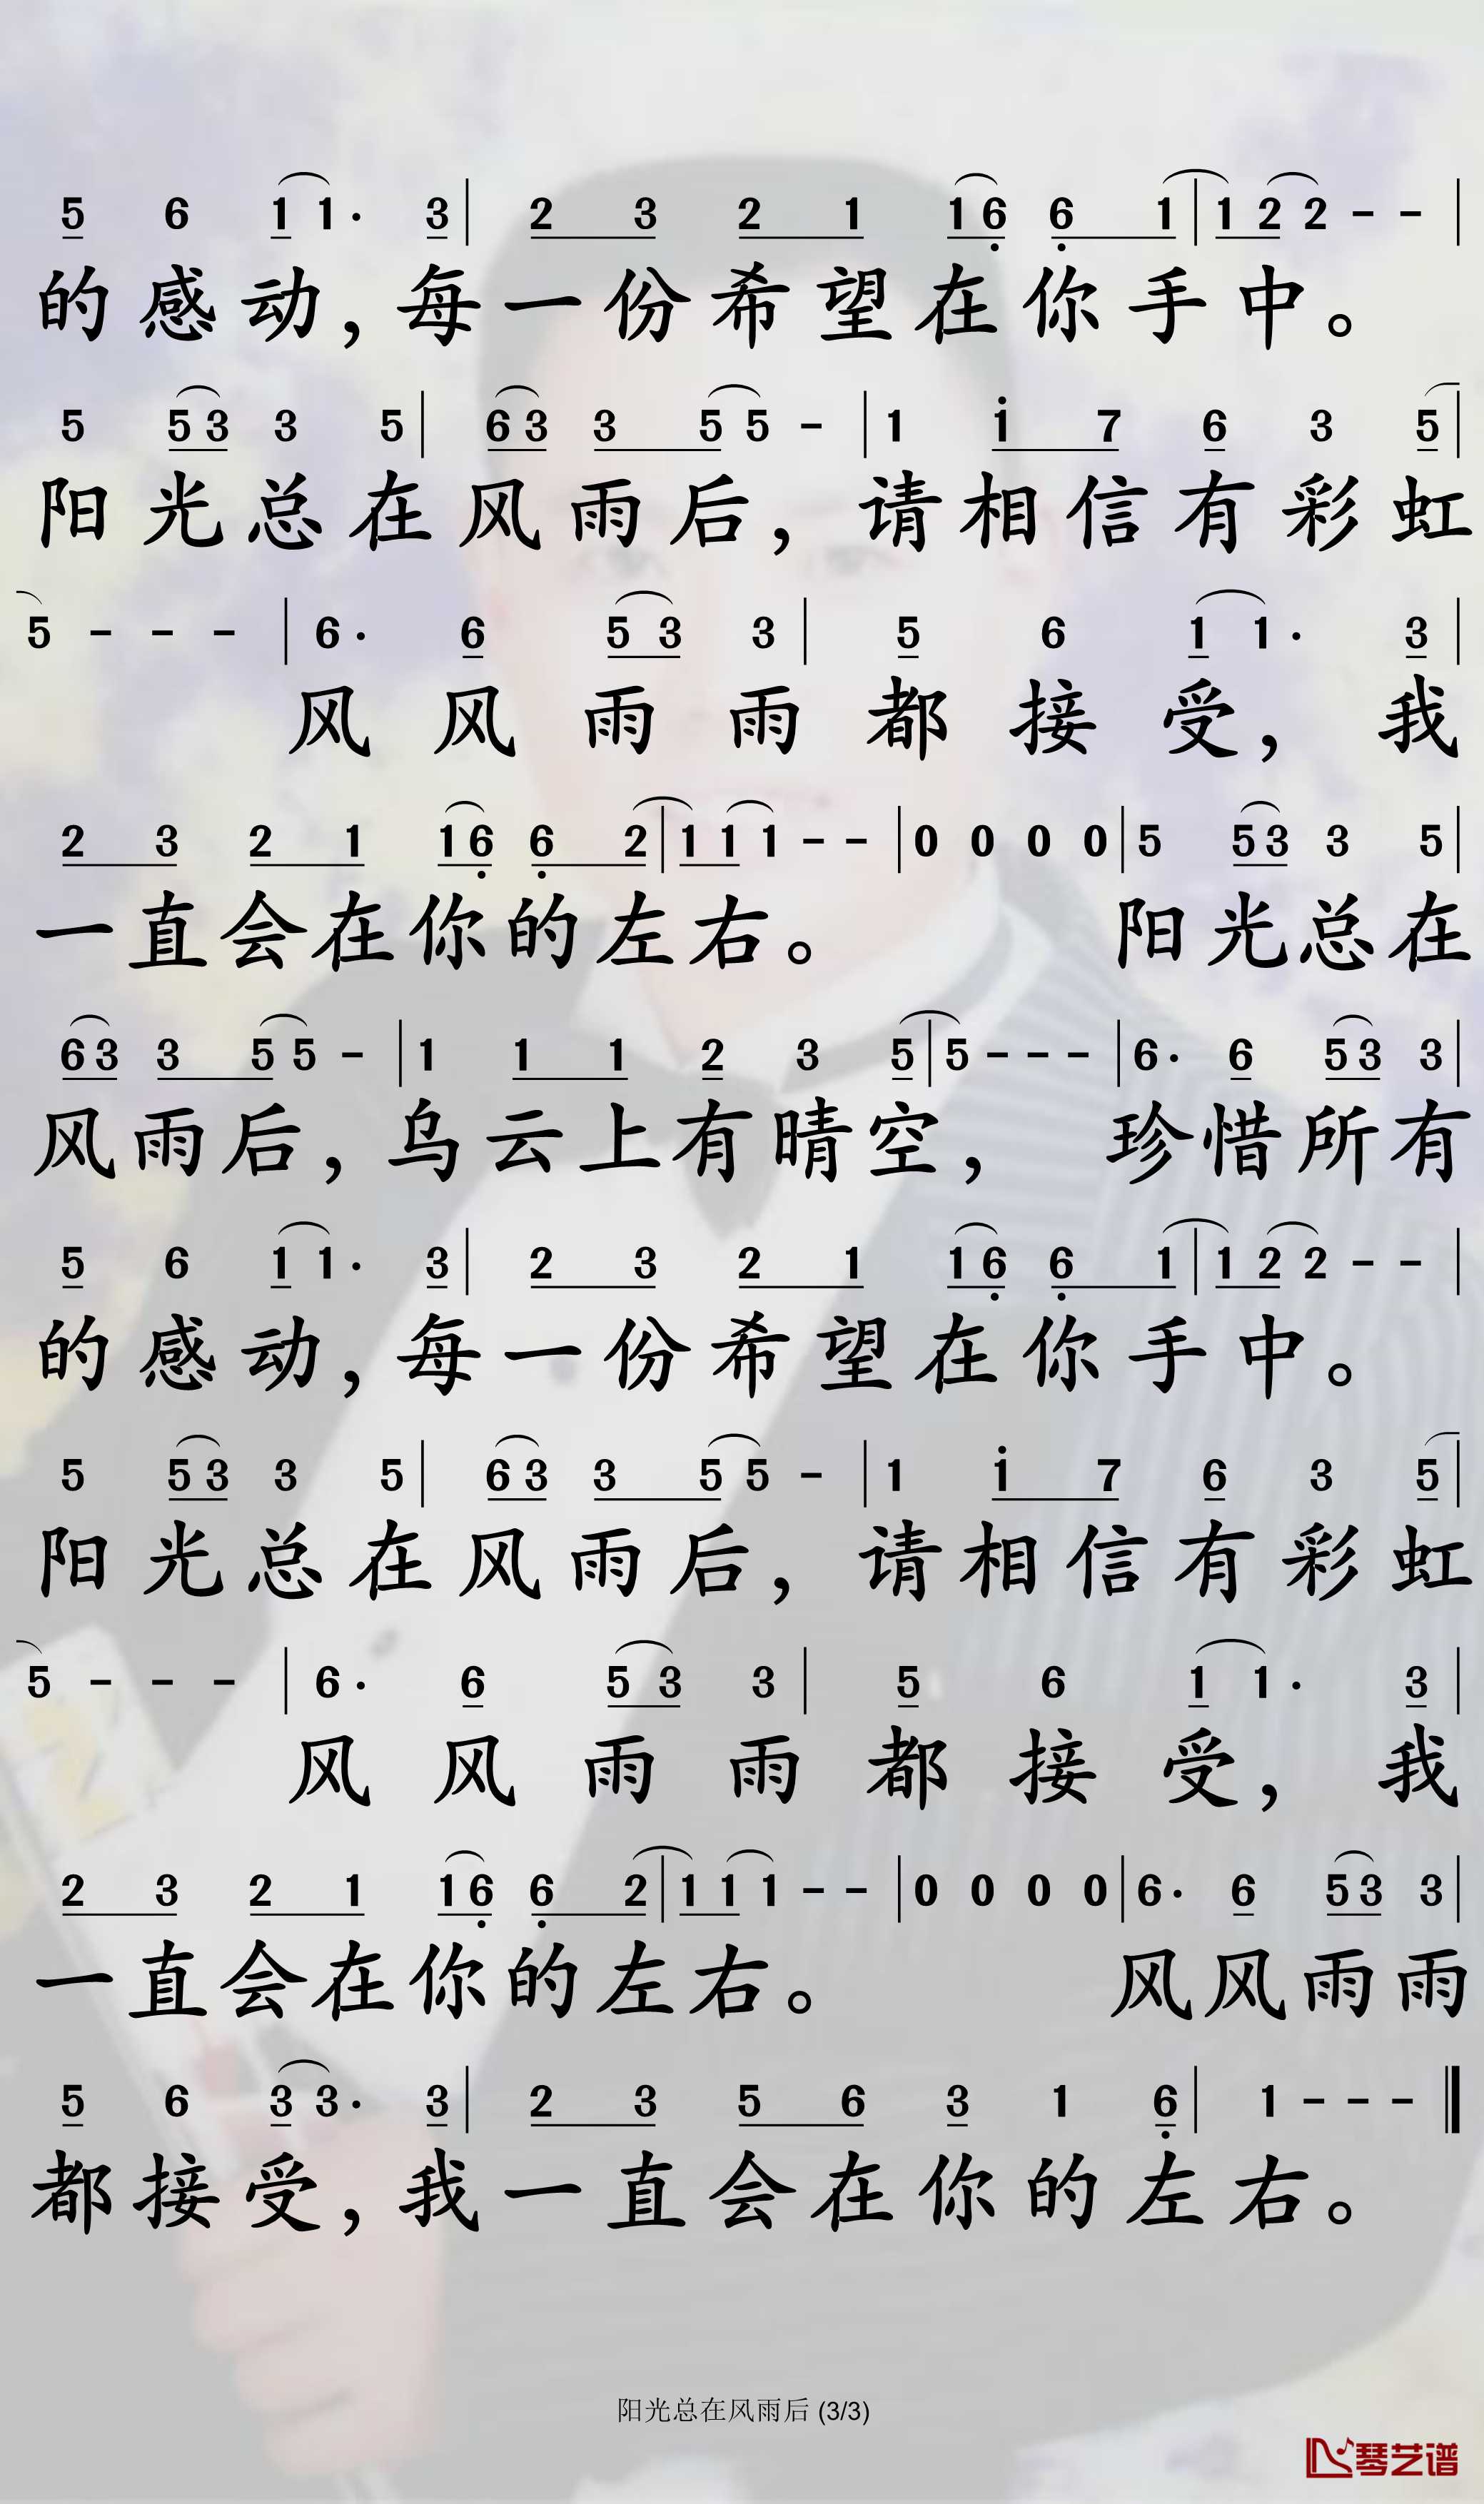 5 6 1 1· 3 | 2 3 2 1 1 6̣ 6̣ 1 | 1 2 2 - - |
的感动，每一份希望在你手中。
5 5 3 3 5 | 6 3 3 5 5 - | 1 1̇ 7 6 3 5 |
阳光总在风雨后，请相信有彩虹
5 - - - | 6· 6 5 3 3 | 5 6 1 1· 3 |
风风雨雨都接受，我
2 3 2 1 1 6̣ 6̣ 2 | 1 1 1 - - | 0 0 0 0 | 5 5 3 3 5 |
一直会在你的左右。 阳光总在
6 3 3 5 5 - | 1 1 1 2 3 5 | 5 - - - | 6· 6 5 3 3 |
风雨后，乌云上有晴空， 珍惜所有
5 6 1 1· 3 | 2 3 2 1 1 6̣ 6̣ 1 | 1 2 2 - - |
的感动，每一份希望在你手中。
5 5 3 3 5 | 6 3 3 5 5 - | 1 1̇ 7 6 3 5 |
阳光总在风雨后，请相信有彩虹
5 - - - | 6· 6 5 3 3 | 5 6 1 1· 3 |
风风雨雨都接受，我
2 3 2 1 1 6̣ 6̣ 2 | 1 1 1 - - | 0 0 0 0 | 6· 6 5 3 3 |
一直会在你的左右。 风风雨雨
5 6 3 3· 3 | 2 3 5 6 3 1 6̣ | 1 - - - ‖
都接受，我一直会在你的左右。
阳光总在风雨后 (3/3)
琴艺谱